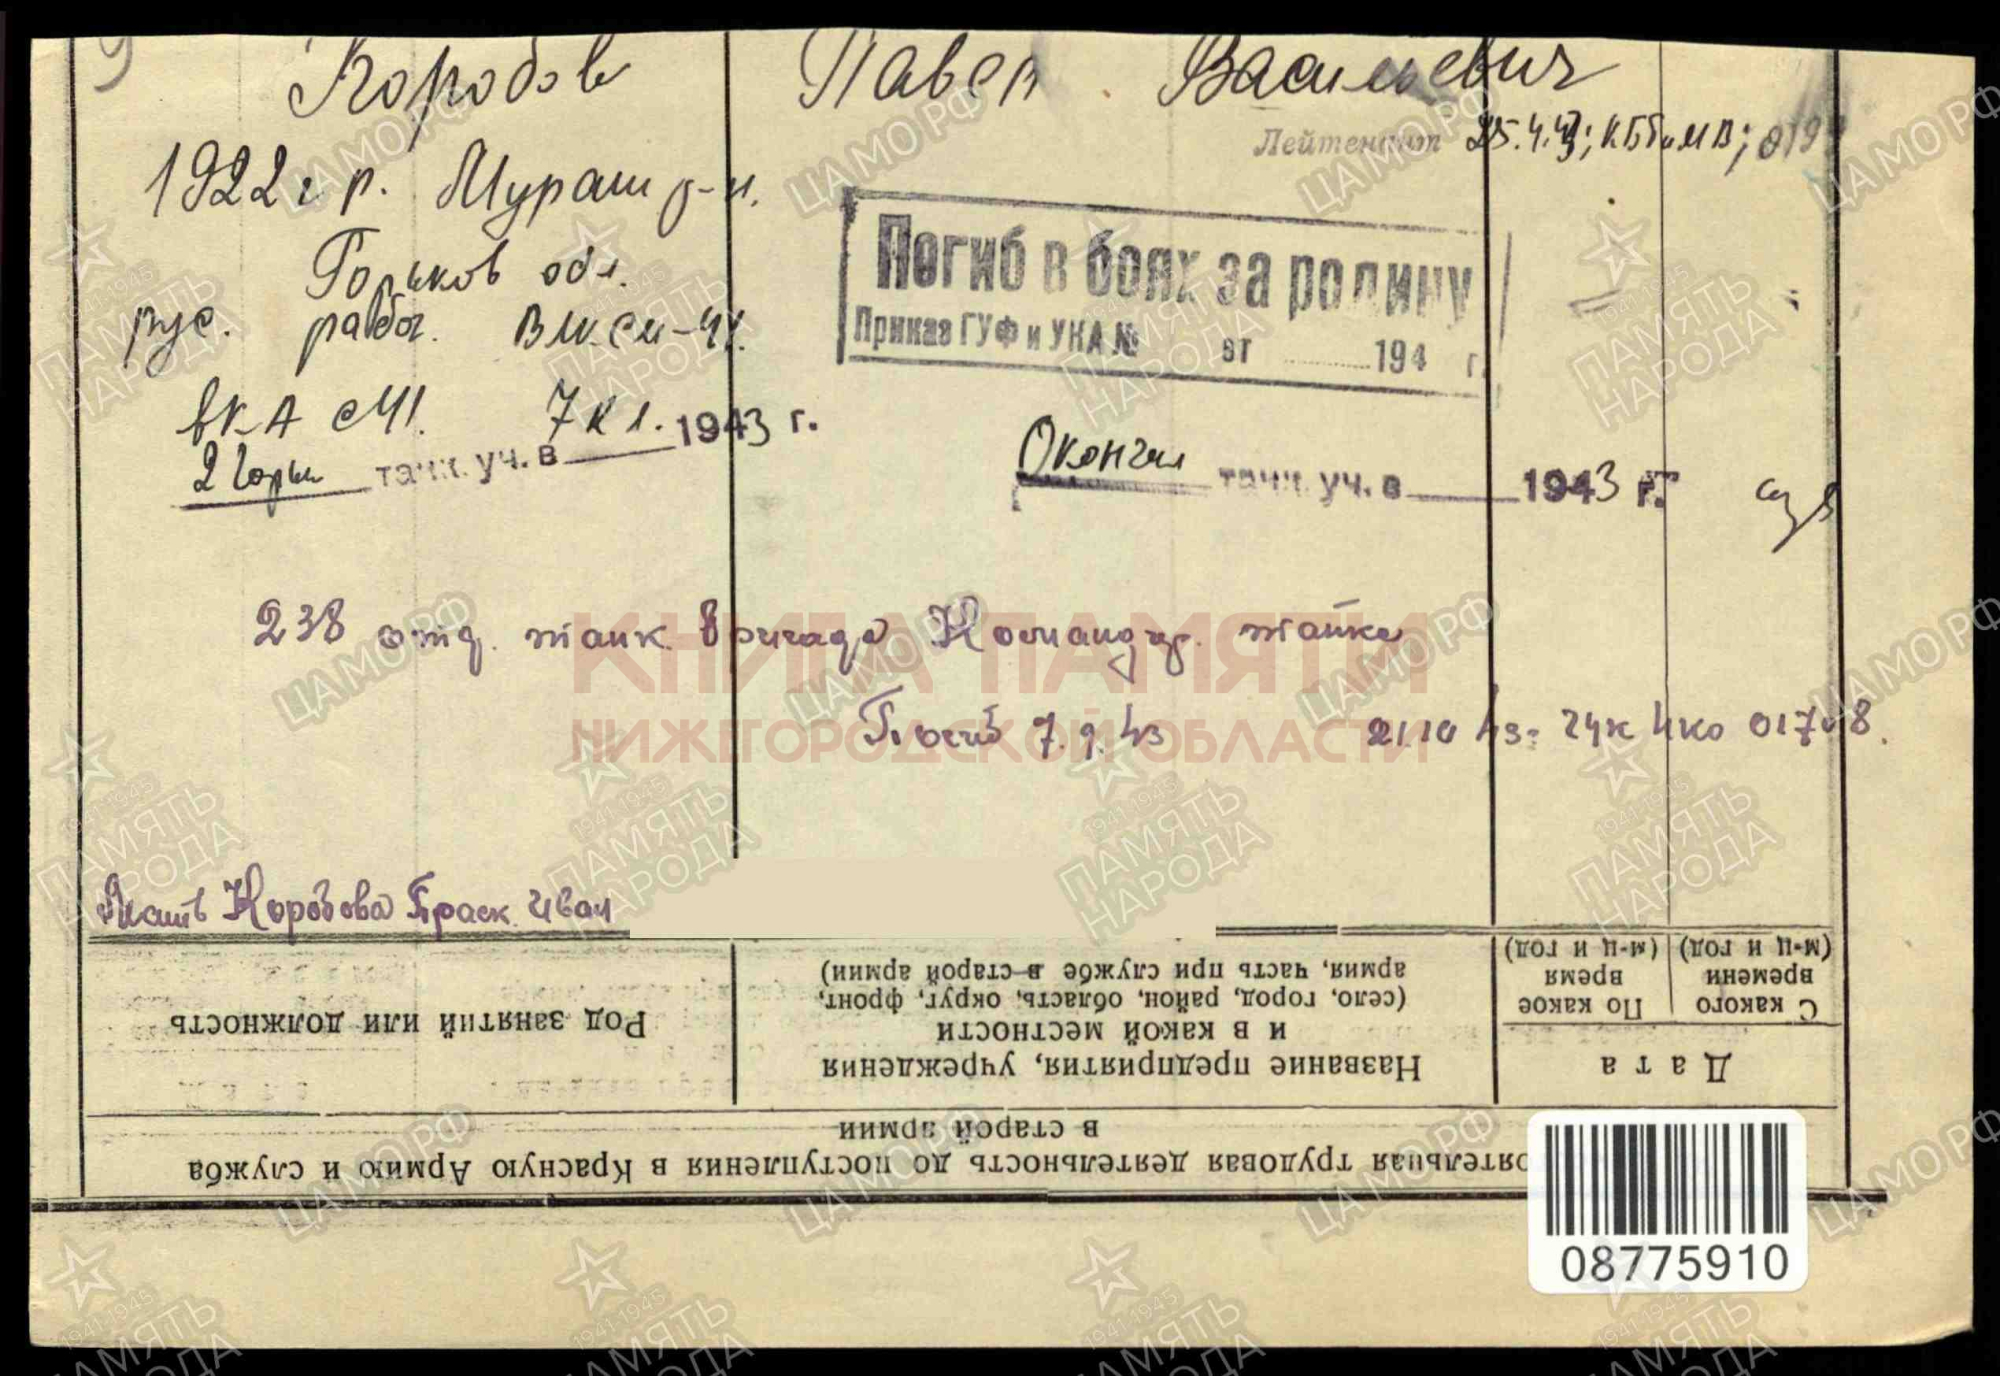 Коробов Павел Васильевич
Лейтенант 25.4.43; КББиМВ; 019
1922 г р. Мураш р-н.
Горьков обл.
рус. рабоч. ВЛКСМ-41.
Погиб в боях за родину
Приказ ГУФ и УКА № от 194 г.
в КА с 41. 7 кл.
2 Горьк танк. уч. в 1943 г.
Окончил танк. уч. в 1943 г.
238 отд. танк. бригада Командир. танка
Погиб 7.9.43 21.10 43-
Мать Коробова Праск. Иван
С какого времени (м-ц и год)
По какое время (м-ц и год)
Дата
Название предприятия, учреждения
и в какой местности
(село, город, район, область, округ, фронт,
армия, часть при службе в старой армии)
Род занятий или должность
трудовая деятельность до поступления в Красную Армию и служба
в старой армии
08775910
КНИГА ПАМЯТИ
НИЖЕГОРОДСКОЙ ОБЛАСТИ
ЦАМО.РФ
1941-1945
ПАМЯТЬ
НАРОДА